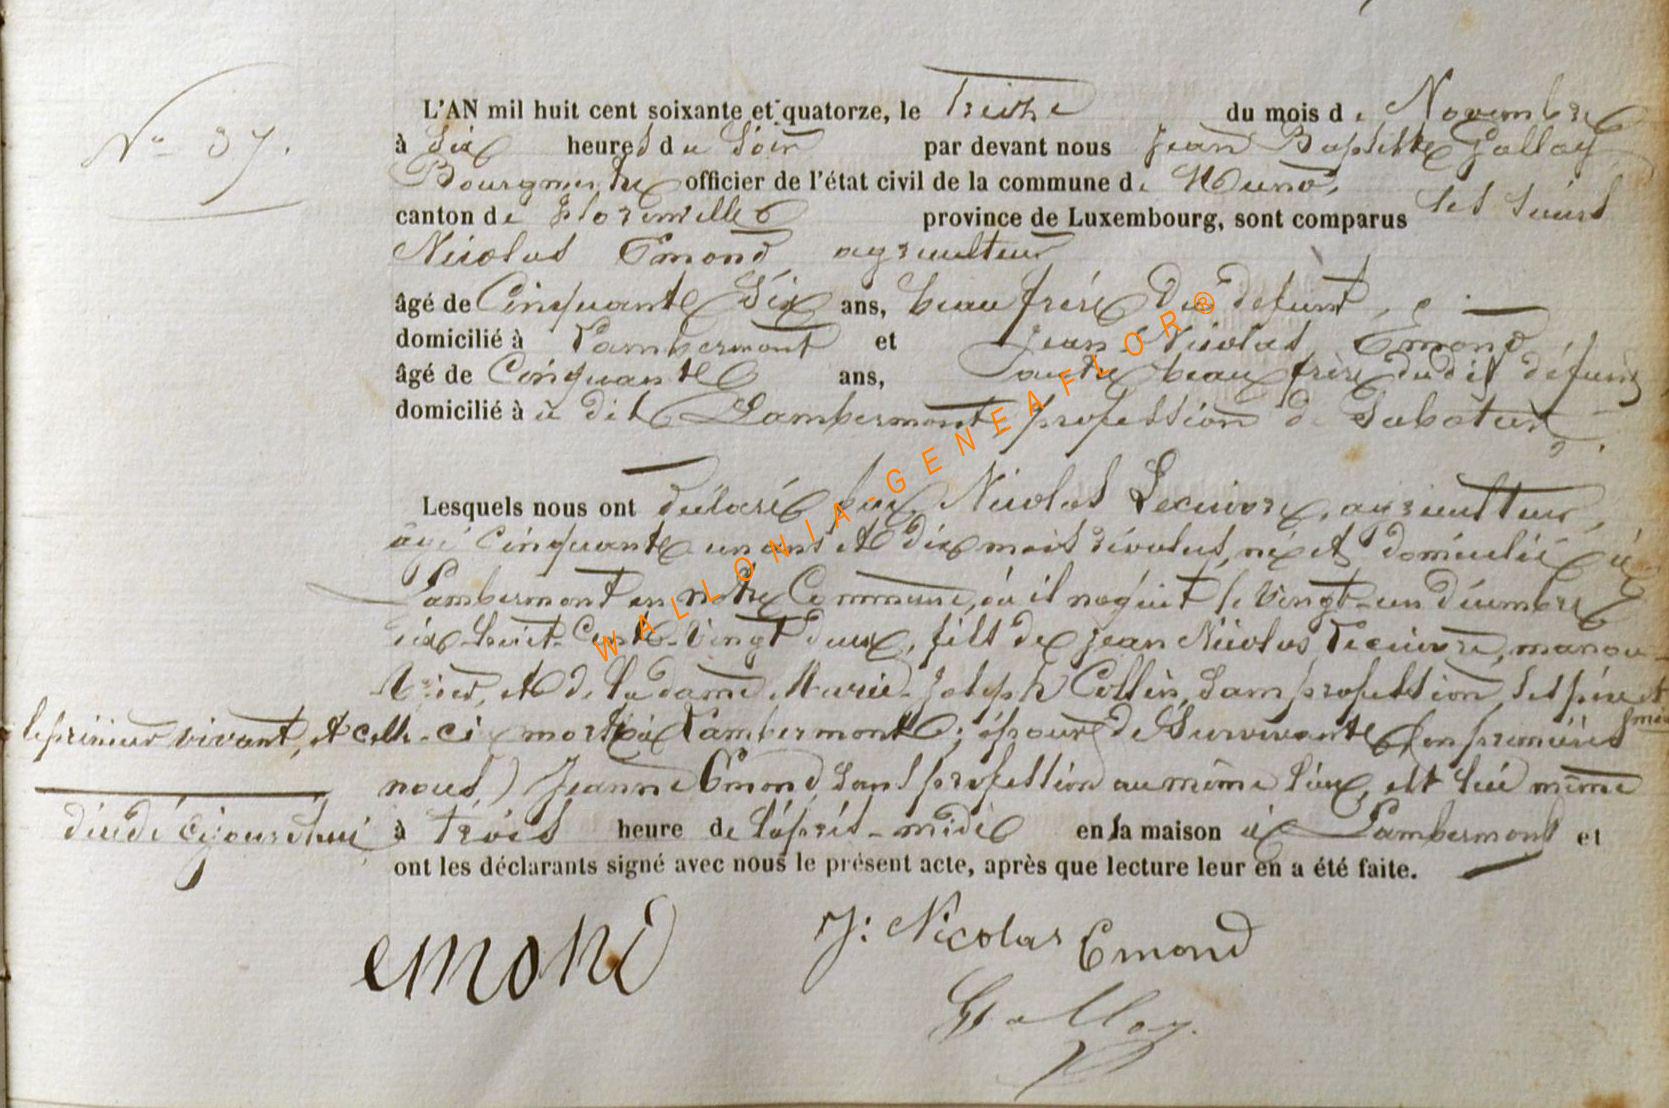 N° 37.
L'AN mil huit cent soixante et quatorze, le Treize du mois de Novembre
à Six heures du Soir par devant nous Jean Baptiste Gallay
Bourgmestre officier de l'état civil de la commune de Muno,
canton de Florenville province de Luxembourg, sont comparus les sieurs
Nicolas Emond, agriculteur
âgé de Cinquante Six ans, beau frère du défunt,
domicilié à Lambermont et Jean Nicolas Emond
âgé de Cinquante ans, autre beau frère dudit défunt,
domicilié à dit Lambermont profession de Sabotier
Lesquels nous ont déclaré que Nicolas Lecuivre, agriculteur,
âgé cinquante-un ans et dix mois révolus, né et domicilié à
Lambermont en notre Commune, où il naquit le vingt-un décembre
dix-huit-cent-vingt deux, fils de Jean Nicolas Lecuivre, manou-
vrier, et de la dame Marie-Joseph Collin, sans profession, ses père et mère
le premier vivant, et celle-ci morte à Lambermont; époux de Survivante (en premières
nous) Jeanne Emond, sans profession au même lieu, est lui même
décédé cejourd'hui à trois heure de l'après-midi en la maison à Lambermont et
ont les déclarants signé avec nous le présent acte, après que lecture leur en a été faite.
emond
J: Nicolas Emond
Gallay
WALLONIA-GENEAFLOR®